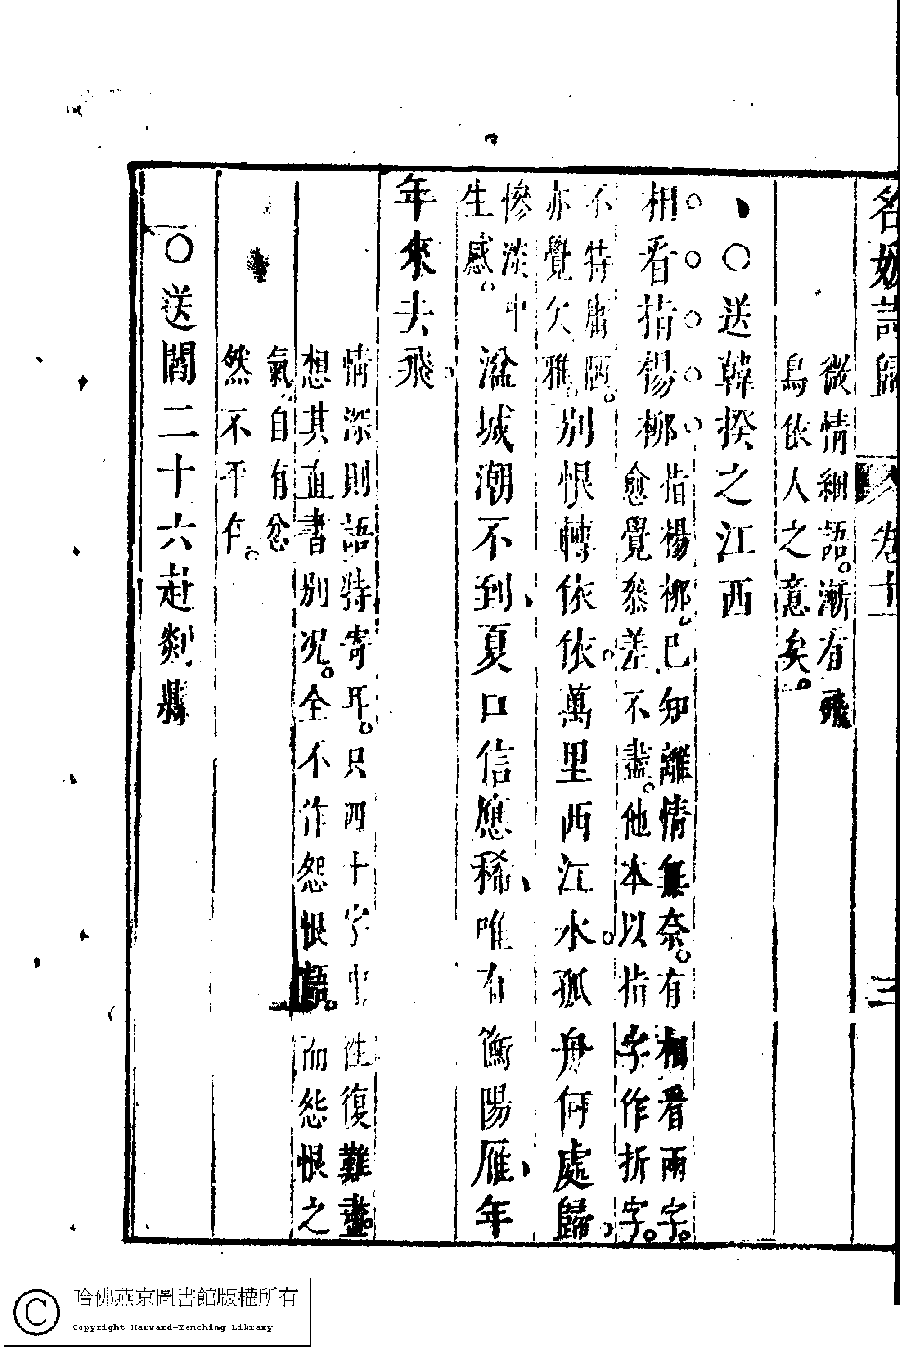 名媛詩歸 卷十一 三
微情細語。漸有飛
鳥依人之意矣。
○送韓揆之江西
相看指楊柳指楊柳。已知離情無奈。有相看兩字。
愈覺參差不盡。他本以指字作折字。
不特庸陋。
亦覺欠雅。別恨轉依依。萬里西江水。孤舟何處歸
慘淡中
生感。湓城潮不到夏口信應稀唯有衡陽雁年
年來去飛
情深則語特寄耳。只四十字中往復難盡
想其面書別況。全不作怨恨語。而怨恨之
氣。自有忿
然不平在。
○送閻二十六赴剡縣
哈佛燕京圖書館版權所有
Copyright Harvard-Yenching Library